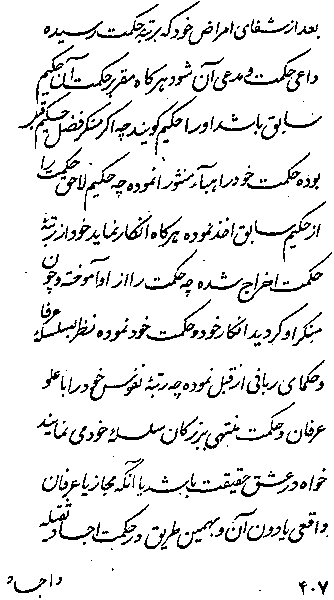 بعد از شفای امراض خود که برتبهٔ حکمت رسیده
داعی حکمت و مدعی آن شود هر گاه مقرّ بر حکمت آن حکیم
سابق باشد او را حکیم گویند چه اگر منکر فضل حکیم قبل
بوده حکمت خود را هباءً منثورا نموده چه حکیم لاحق حکمت را
از حکیم سابق اخذ نموده هر گاه انکار نماید خود از رتبهٔ
حکمت اخراج شده چه حکمت را از او آموخته و چون
منکر او گردید انکار خود و حکمت خود نموده نظر بسلسلهٔ عرفا
و حکمای ربانی از قبل نموده چه رتبهٔ نفوس خود را با علو
عرفان و حکمت منتهی ببزرگان سلسلهٔ خود می نمایند
خواه در عشق حقیقت باشد یا آنکه مجاز یا عرفان
واقعی یا دون آن و بهمین طریق در حکمت اجساد ثقیله
۴۰۷
و اجساد